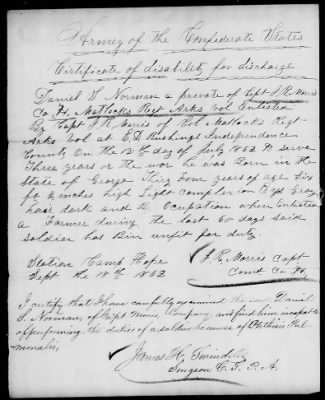 Armey of the Confederate States
Certificate of disability for discharge
Daniel S Norman a private of Capt J. R. Morris
Co H, Matlocks Regt Arks vol Enlisted
By Capt J R Morris of Col Matlocks Regt
Arks vol at E D Rushings Independence
County on the 12th day of July 1862 to serve
Three years or the war he was Born in the
State of George Thirty four years of age Six
ft 2 inches high Light complexion Eys Gray
hair dark and By Ocupation when Enlisted
a Farmer during the last 60 days said
soldier has Bin unfit for duty.
Station Camp Hope
Sept the 18th 1862
J. R. Morris Capt
Comd Co H.
I certify that I have carefully examined the said Daniel
S. Norman, of Capt Morris Company and find him incapable
of performing the duties of a soldier because of Phthisis Pul-
monalis,
James H. Swindle
Surgeon C. S. P. A.